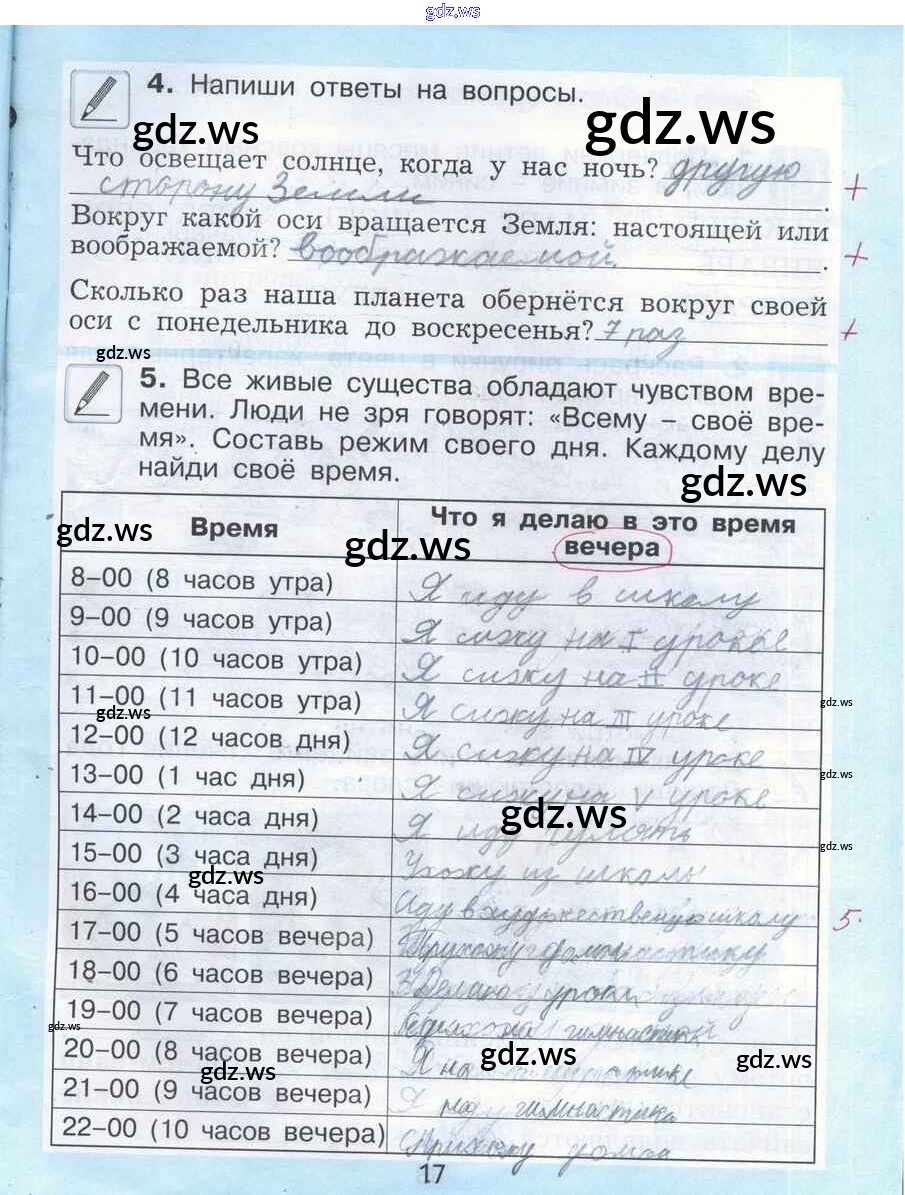 gdz.ws
4. Напиши ответы на вопросы.
gdz.ws gdz.ws
Что освещает солнце, когда у нас ночь? другую
сторону Земли. +
Вокруг какой оси вращается Земля: настоящей или
воображаемой? воображаемой. +
Сколько раз наша планета обернётся вокруг своей
оси с понедельника до воскресенья? 7 раз +
gdz.ws
5. Все живые существа обладают чувством вре-
мени. Люди не зря говорят: «Всему – своё вре-
мя». Составь режим своего дня. Каждому делу
найди своё время.
gdz.ws
Время Что я делаю в это время
вечера
gdz.ws gdz.ws
8–00 (8 часов утра) Я иду в школу
9–00 (9 часов утра) Я сижу на I уроке
10–00 (10 часов утра) Я сижу на II уроке
11–00 (11 часов утра) Я сижу на III уроке
gdz.ws gdz.ws
12–00 (12 часов дня) Я сижу на IV уроке
gdz.ws
13–00 (1 час дня) Я сижу на V уроке
gdz.ws
14–00 (2 часа дня) Я иду гулять
gdz.ws
15–00 (3 часа дня) Ухожу из школы
gdz.ws
16–00 (4 часа дня) Иду в школу 5.
17–00 (5 часов вечера) Прихожу домой
18–00 (6 часов вечера) Делаю уроки
19–00 (7 часов вечера) на гимнастику
gdz.ws
20–00 (8 часов вечера) Я на
gdz.ws gdz.ws gdz.ws
21–00 (9 часов вечера) Я на гимнастике
22–00 (10 часов вечера) Прихожу домой
17
gdz.ws